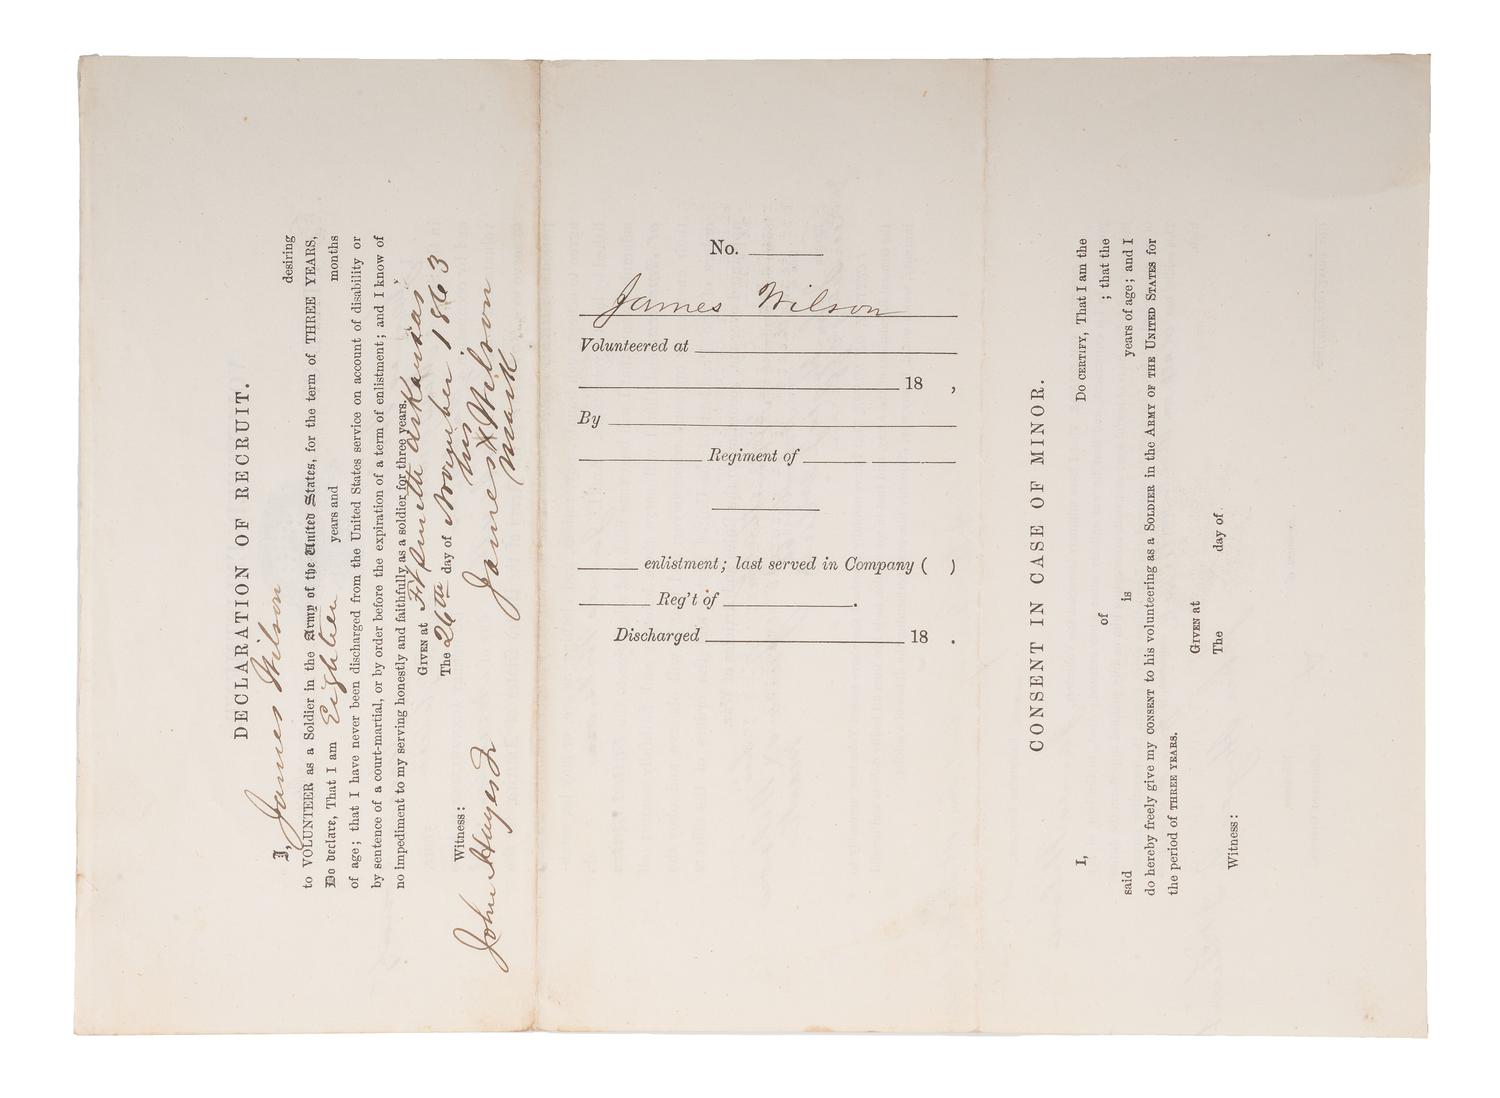 DECLARATION OF RECRUIT.
I, James Wilson desiring
to VOLUNTEER as a Soldier in the Army of the United States, for the term of THREE YEARS,
Do declare, That I am Eighteen years and months
of age; that I have never been discharged from the United States service on account of disability or
by sentence of a court-martial, or by order before the expiration of a term of enlistment; and I know of
no impediment to my serving honestly and faithfully as a soldier for three years.
GIVEN at Ft Smith Arkansas
The 26th day of November 1863
his
James X Wilson
mark
Witness:
John Hayes Jr
No.
James Wilson
Volunteered at
18 ,
By
Regiment of
enlistment; last served in Company ( )
Reg't of .
Discharged 18 .
CONSENT IN CASE OF MINOR.
I, Do CERTIFY, That I am the
of ; that the
said is years of age; and I
do hereby freely give my CONSENT to his volunteering as a SOLDIER in the ARMY OF THE UNITED STATES for
the period of THREE YEARS.
GIVEN at
The day of
Witness: